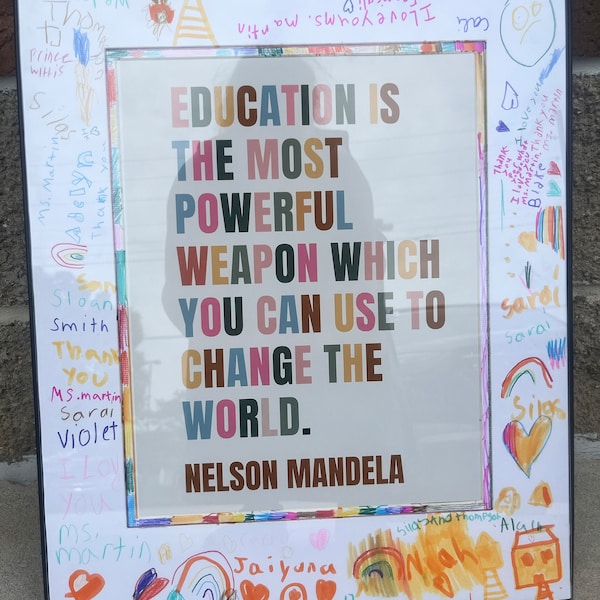 I love you ms. martin
Cali
Prince
Whtis
Silas
Ms. Martin
Adelyn
Thank you
Thank
you
Blake
EDUCATION IS
THE MOST
POWERFUL
WEAPON WHICH
YOU CAN USE TO
CHANGE THE
WORLD.
NELSON MANDELA
Sloan
Smith
Thank
You
Ms. martin
Sarai
Violet
I Love
you
ms.
martin
Sarai
Sarai
Silas
Jaiyana
Noah
Alan